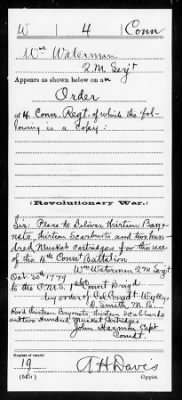 W 4 Conn
Wm Waterman
Q.M. Serjt
Appears as shown below on an
Order
of 4 Conn. Regt. of which the fol-
lowing is a Copy:
(Revolutionary War.)
Sir: Please to Deliver thirteen Bayo-
nets, thirteen Scabbards and two hun-
dred Musket Cartridges for the use
of the 4th Connt Battalion
Wm Waterman QM Serjt
Oct 20th 1779
to the C.M.S. 1st Connt Brigd
by order of Col. Wyllys
D. Smith, M.B.
Recd thirteen Bayonets, thirteen Scabbards
and two Hundred Musket Cartridges
John Harmon Capt
Number of record:
19
A H Davis
Copyist.